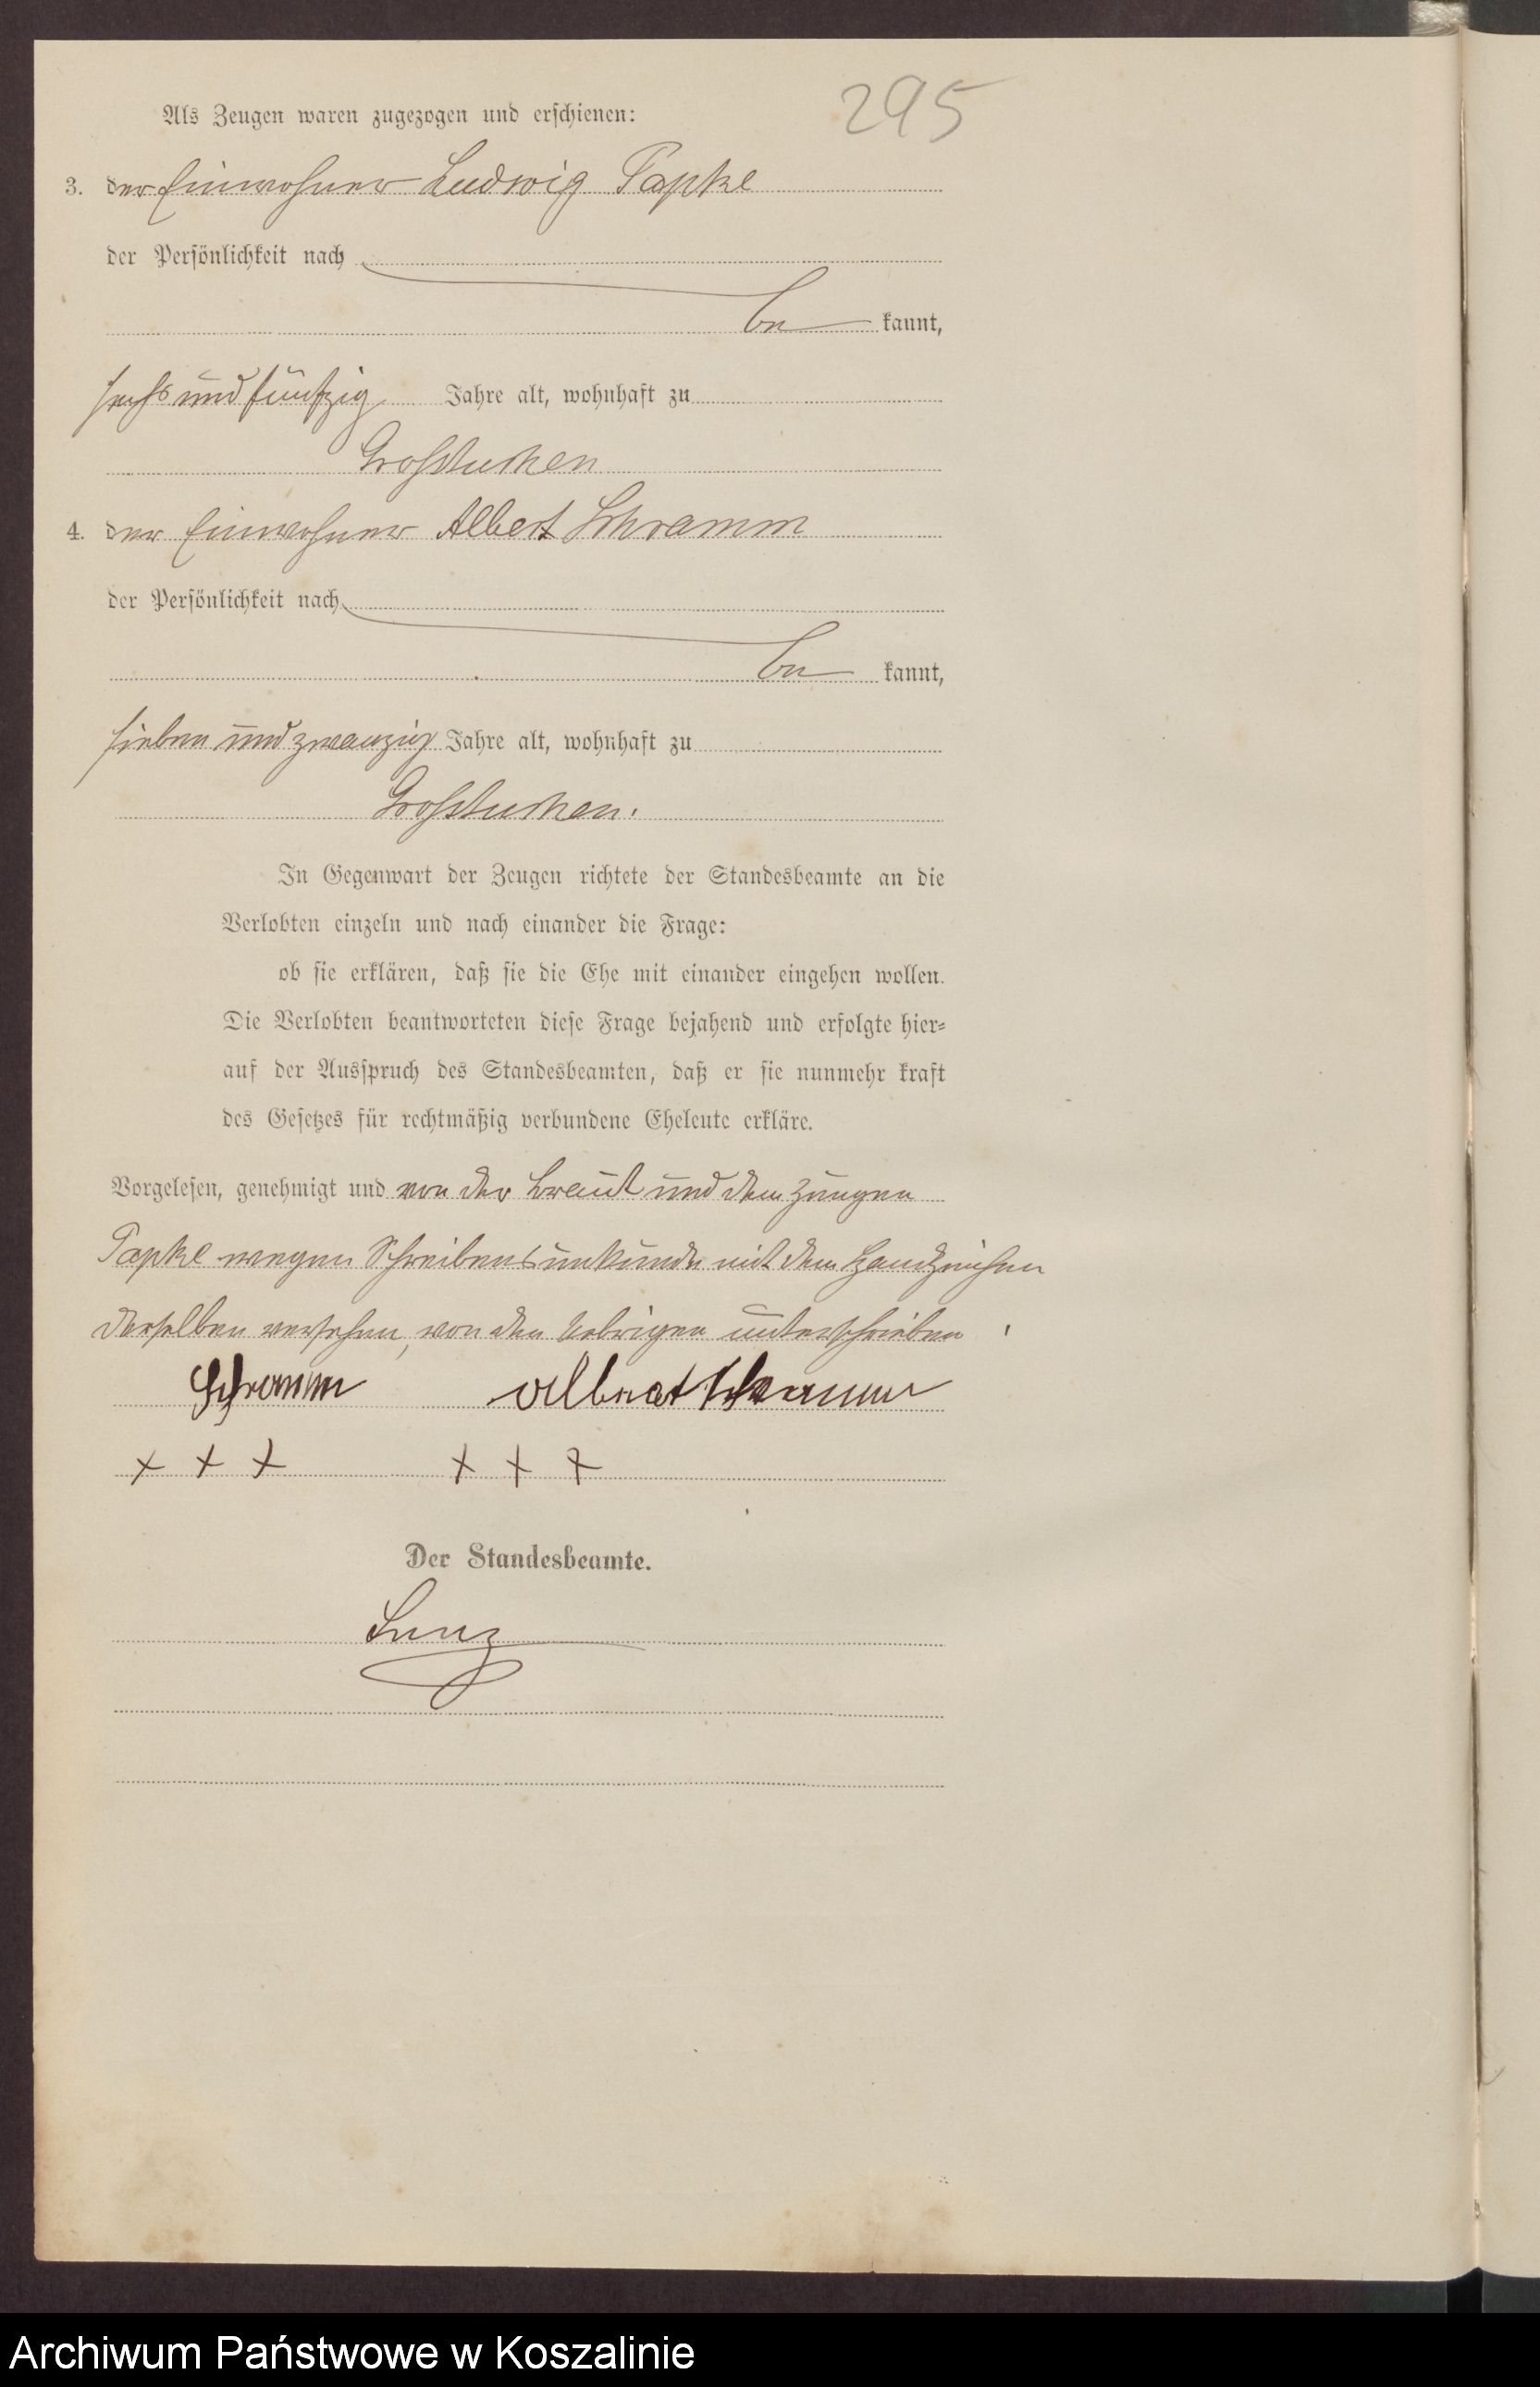 295
Als Zeugen waren zugezogen und erschienen:
3. der Einwohner Ludwig Papke
der Persönlichkeit nach
be kannt,
sechs und fünfzig Jahre alt, wohnhaft zu
Großtuchen
4. der Einwohner Albert Schramm
der Persönlichkeit nach
be kannt,
sieben und zwanzig Jahre alt, wohnhaft zu
Großtuchen.
In Gegenwart der Zeugen richtete der Standesbeamte an die
Verlobten einzeln und nach einander die Frage:
ob sie erklären, daß sie die Ehe mit einander eingehen wollen.
Die Verlobten beantworteten diese Frage bejahend und erfolgte hier=
auf der Ausspruch des Standesbeamten, daß er sie nunmehr kraft
des Gesetzes für rechtmäßig verbundene Eheleute erkläre.
Vorgelesen, genehmigt und von der Braut und dem Zeugen
Papke wegen Schreibensunkunde mit dem Handzeichen
derselben versehen, von den Uebrigen unterschrieben
Schramm Albert Schramm
+ + + + + +
Der Standesbeamte.
Archiwum Państwowe w Koszalinie